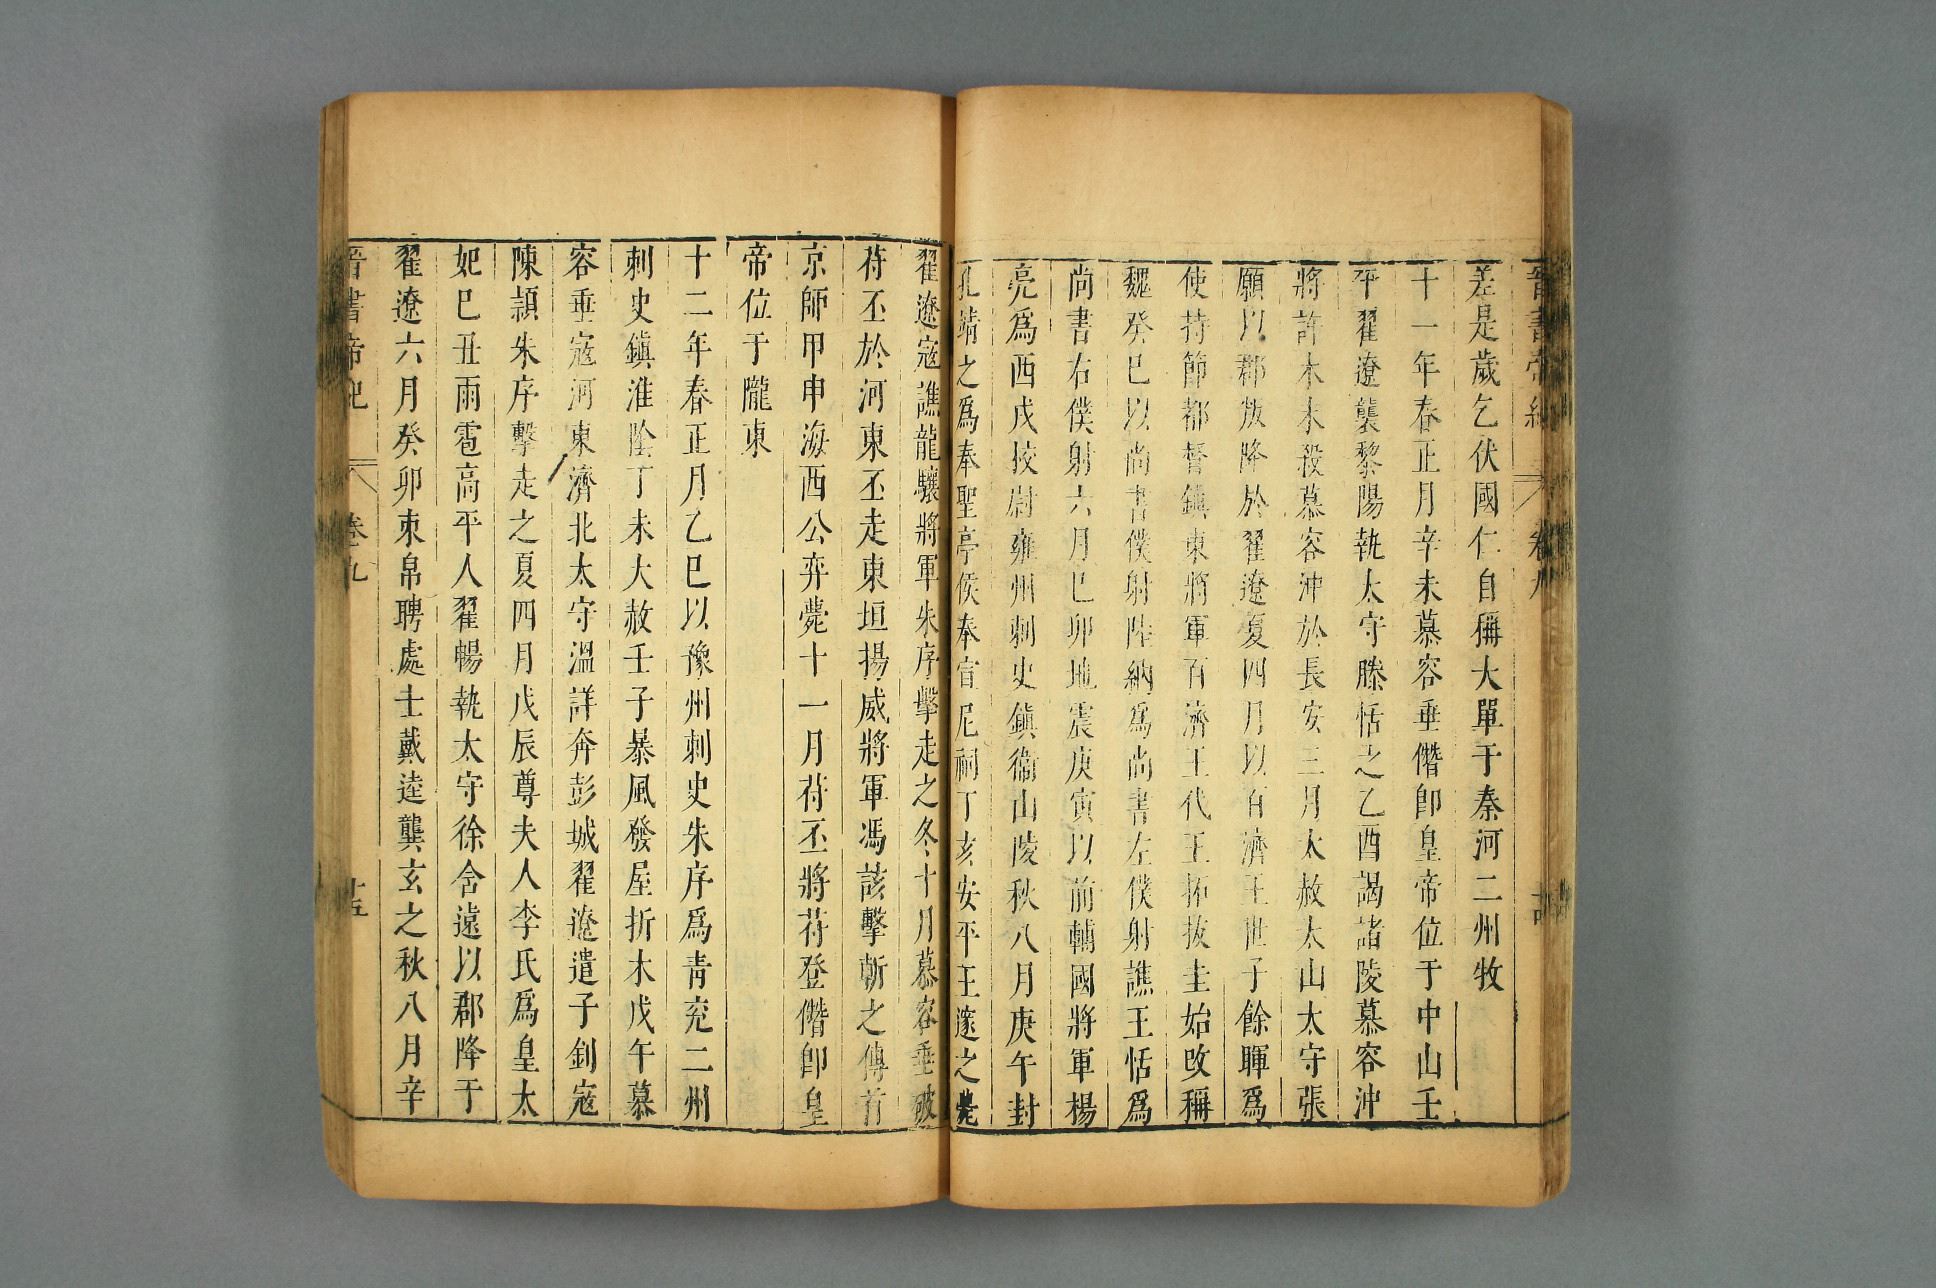 晉書帝紀 卷九
差是歲乞伏國仁自稱大單于秦河二州牧
十一年春正月辛未慕容垂僭卽皇帝位于中山壬
午翟遼襲黎陽執太守滕恬之乙酉謁諸陵慕容沖
將許木末殺慕容沖於長安三月太赦太山太守張
願以郡叛降於翟遼夏四月以百濟王世子餘暉爲
使持節都督鎭東將軍百濟王代王拓拔圭始改稱
魏癸巳以尚書僕射陸納爲尚書左僕射譙王恬爲
尚書右僕射六月己卯地震庚寅以前輔國將軍楊
亮爲西戎挍尉雍州刺史鎭衞山陵秋八月庚午封
孔靖之爲奉聖亭侯奉宣尼祠丁亥安平王邃之薨
翟遼寇譙龍驤將軍朱序擊走之冬十月慕容垂破
苻丕於河東丕走東垣揚威將軍馮該擊斬之傳首
京師甲申海西公弈薨十一月苻丕將苻登僭卽皇
帝位于隴東
十二年春正月乙巳以豫州刺史朱序爲靑兗二州
刺史鎭淮陰丁未大赦壬子暴風發屋折木戊午慕
容垂寇河東濟北太守溫詳奔彭城翟遼遣子釗寇
陳潁朱序擊走之夏四月戊辰尊夫人李氏爲皇太
妃巳丑雨雹高平人翟暢執太守徐含遠以郡降于
翟遼六月癸卯束帛聘處士戴逵龔玄之秋八月辛
晉書帝紀 卷九 十五